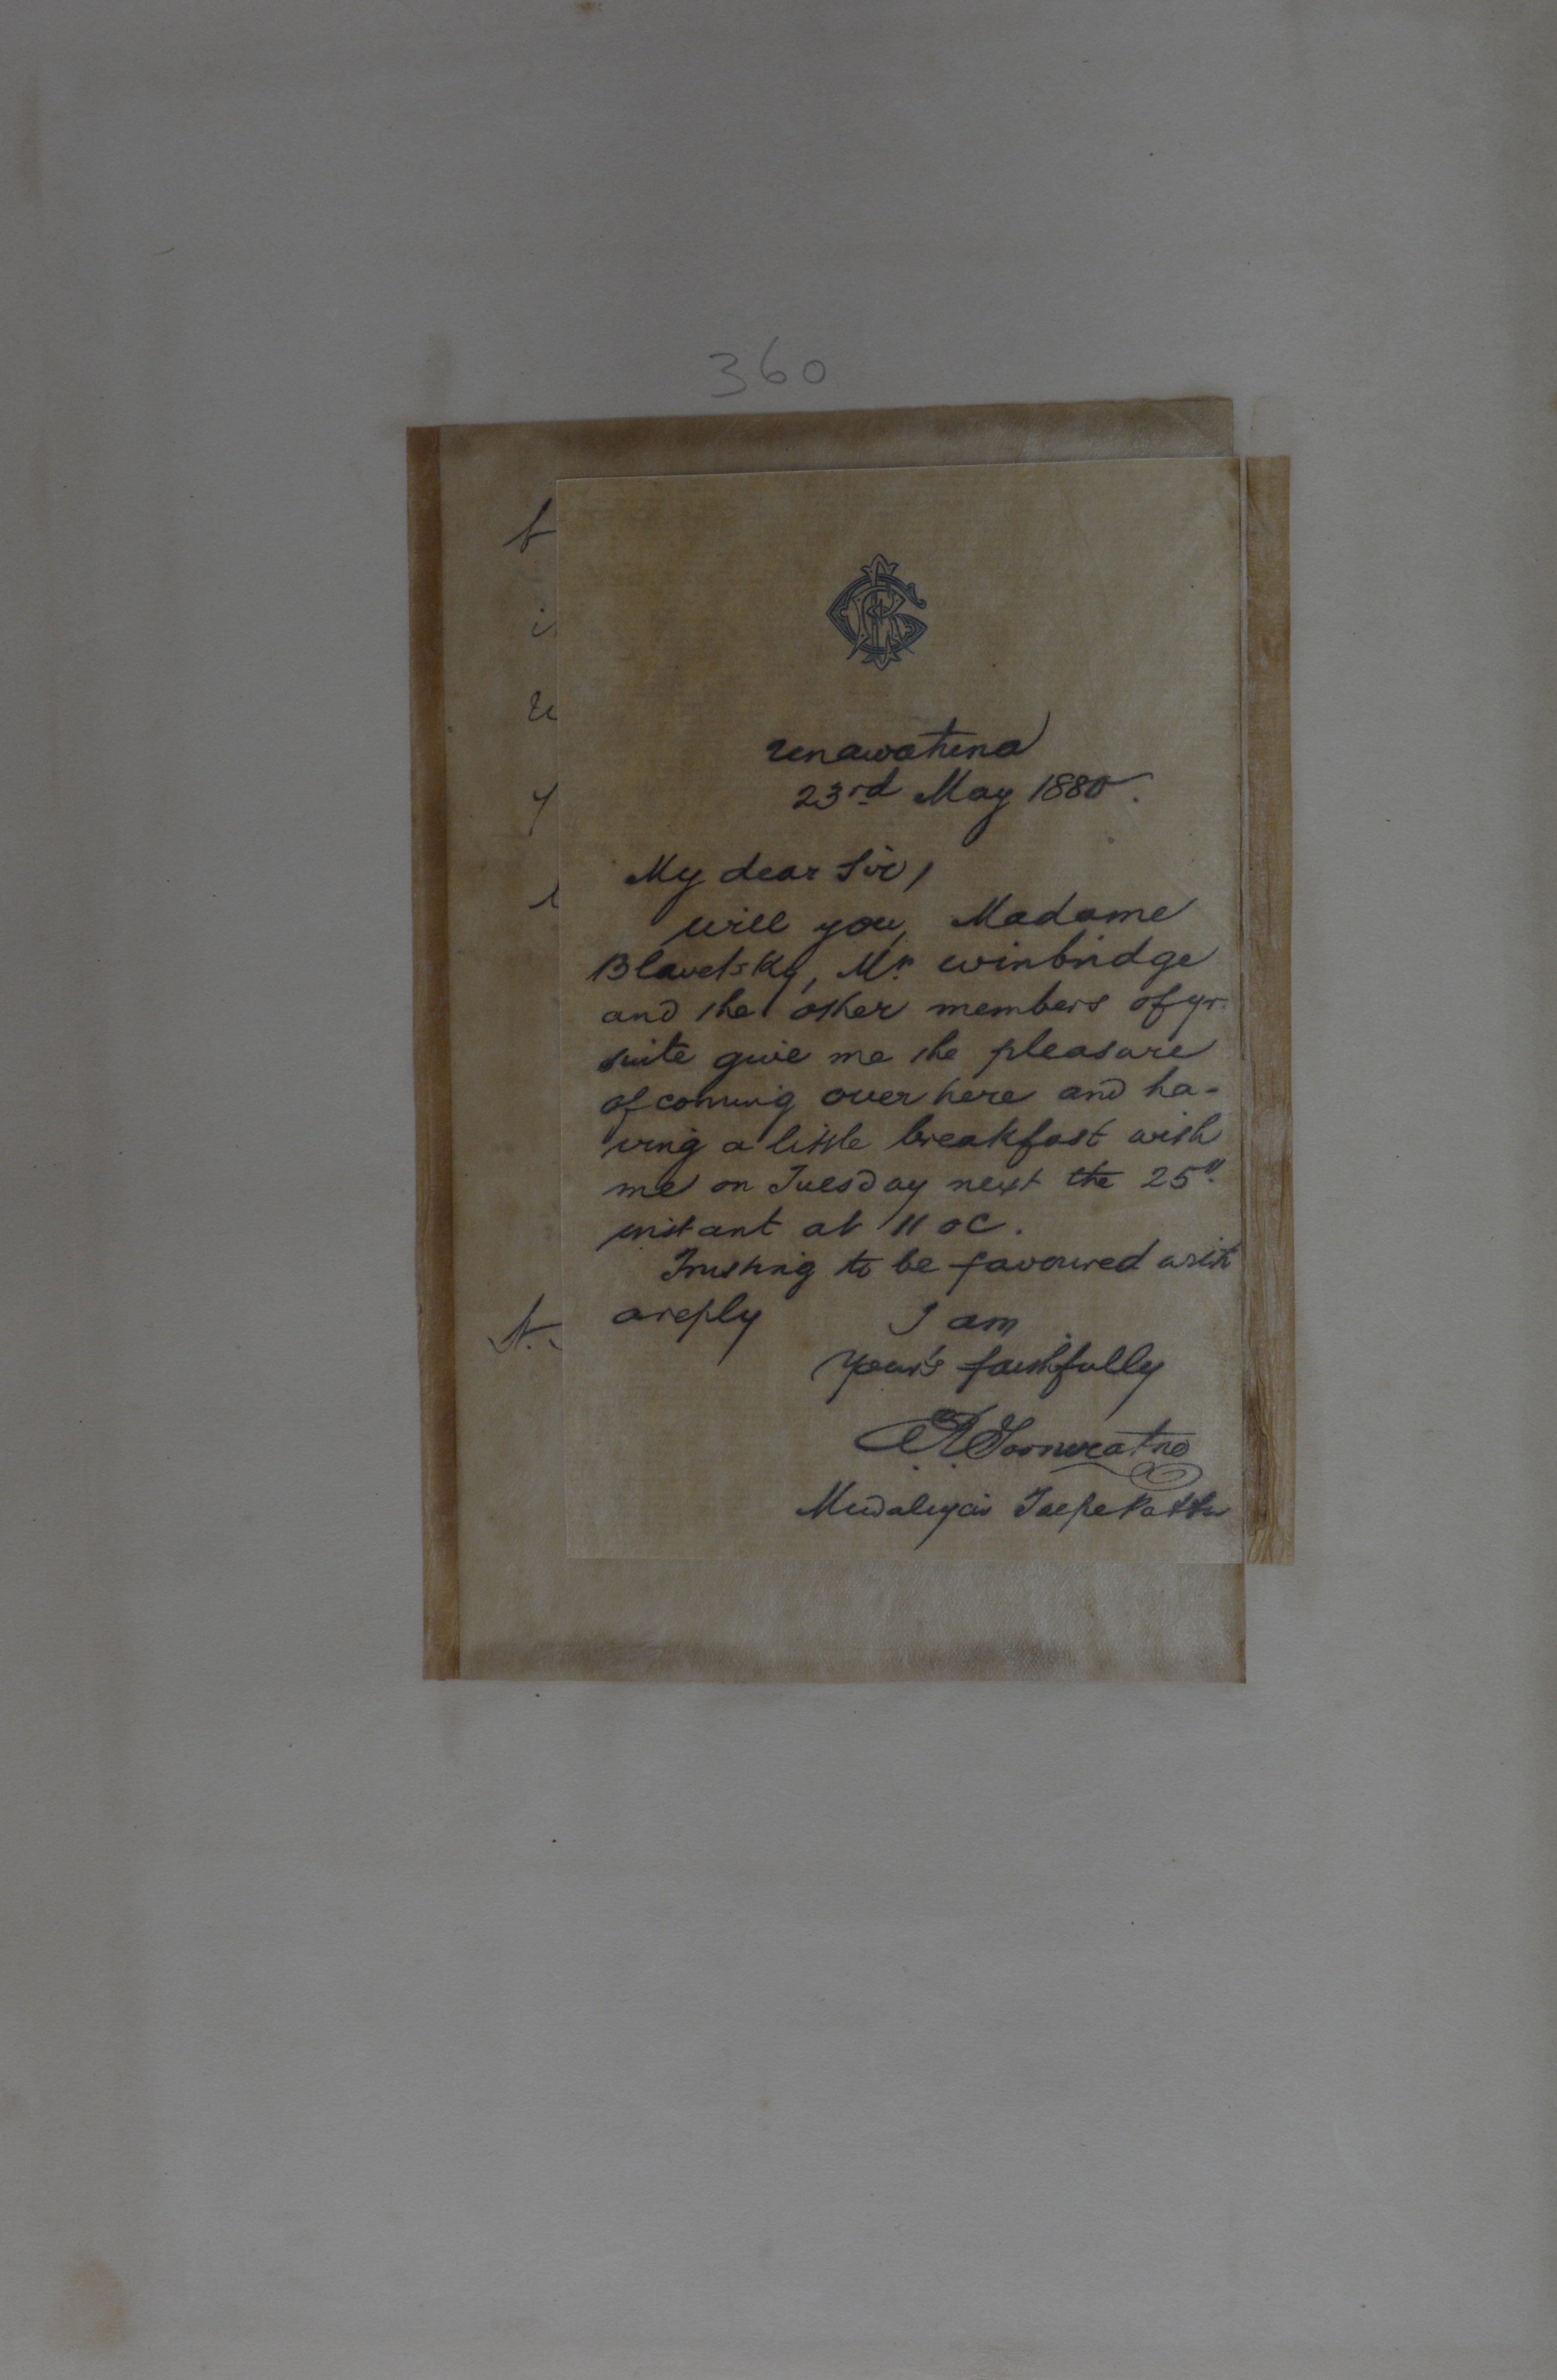 360
Unawatuna
23rd May 1880.
My dear Sir,
will you, Madame
Blavetsky, Mr. winbridge
and the other members of yr.
suite give me the pleasure
of coming over here and ha-
ving a little breakfast with
me on Tuesday next the 25"
instant at 11 oC.
Trusting to be favoured with
a reply I am
Your's faithfully
Goonweratne
Mudaliyar Talpe Pattu